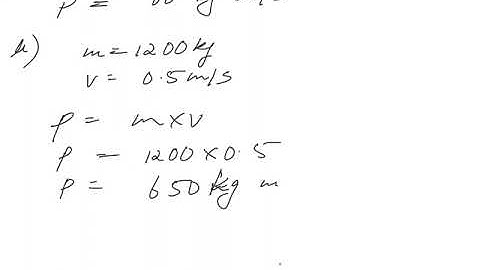 P =
b) m = 1200 kg
v = 0.5 m/s
P = m x v
P = 1200 x 0.5
P = 650 kg m